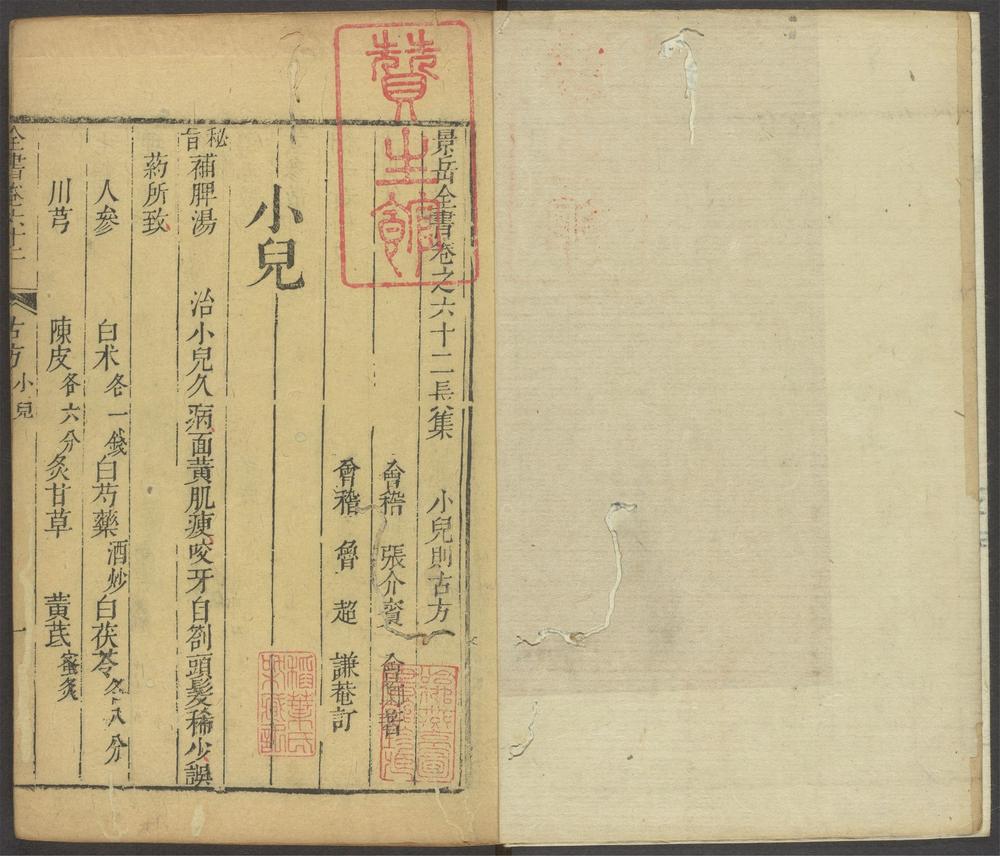 景岳全書卷之六十二長集 小兒則古方
會稽 張介賓 會卿著
會稽 魯超 謙菴訂
小兒
秘旨補脾湯 治小兒久病面黃肌瘦咬牙目劄頭髮稀少誤
药所致
人參 白朮各一錢白芍藥酒炒白茯苓各八分
川芎 陳皮各六分炙甘草 黃茋蜜炙
全書卷六十二 古方 小兒 一
贊生館
稻葉氏